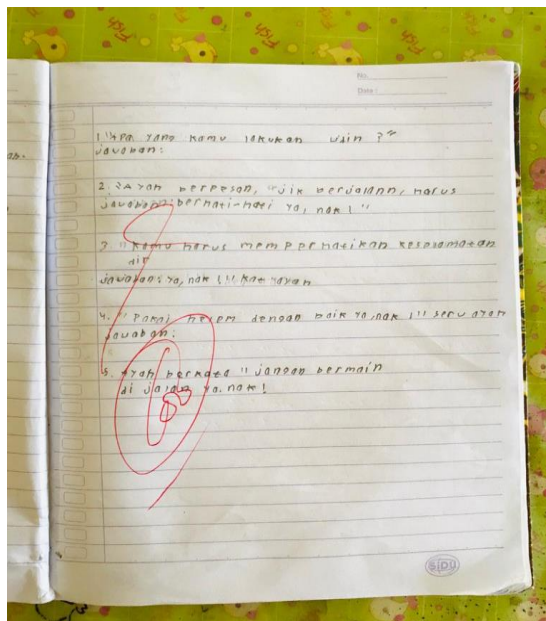 No.
Date :
1 "Apa yang kamu lakukan udin ?"
jawaban:
2. Ayah berpesan, "jik berjalann, harus
jawaban: berhati-hati ya, nak ! "
3. "kamu harus memperhatikan keselamatan
dir
jawaban: ya, nak ! " kat ayah
4. " Pakai helem dengan baik ya, nak ! " seru ayah
jawaban:
5. ayah berkata " jangan bermain
di jalan ya. nak !
100
SIDU
Fish